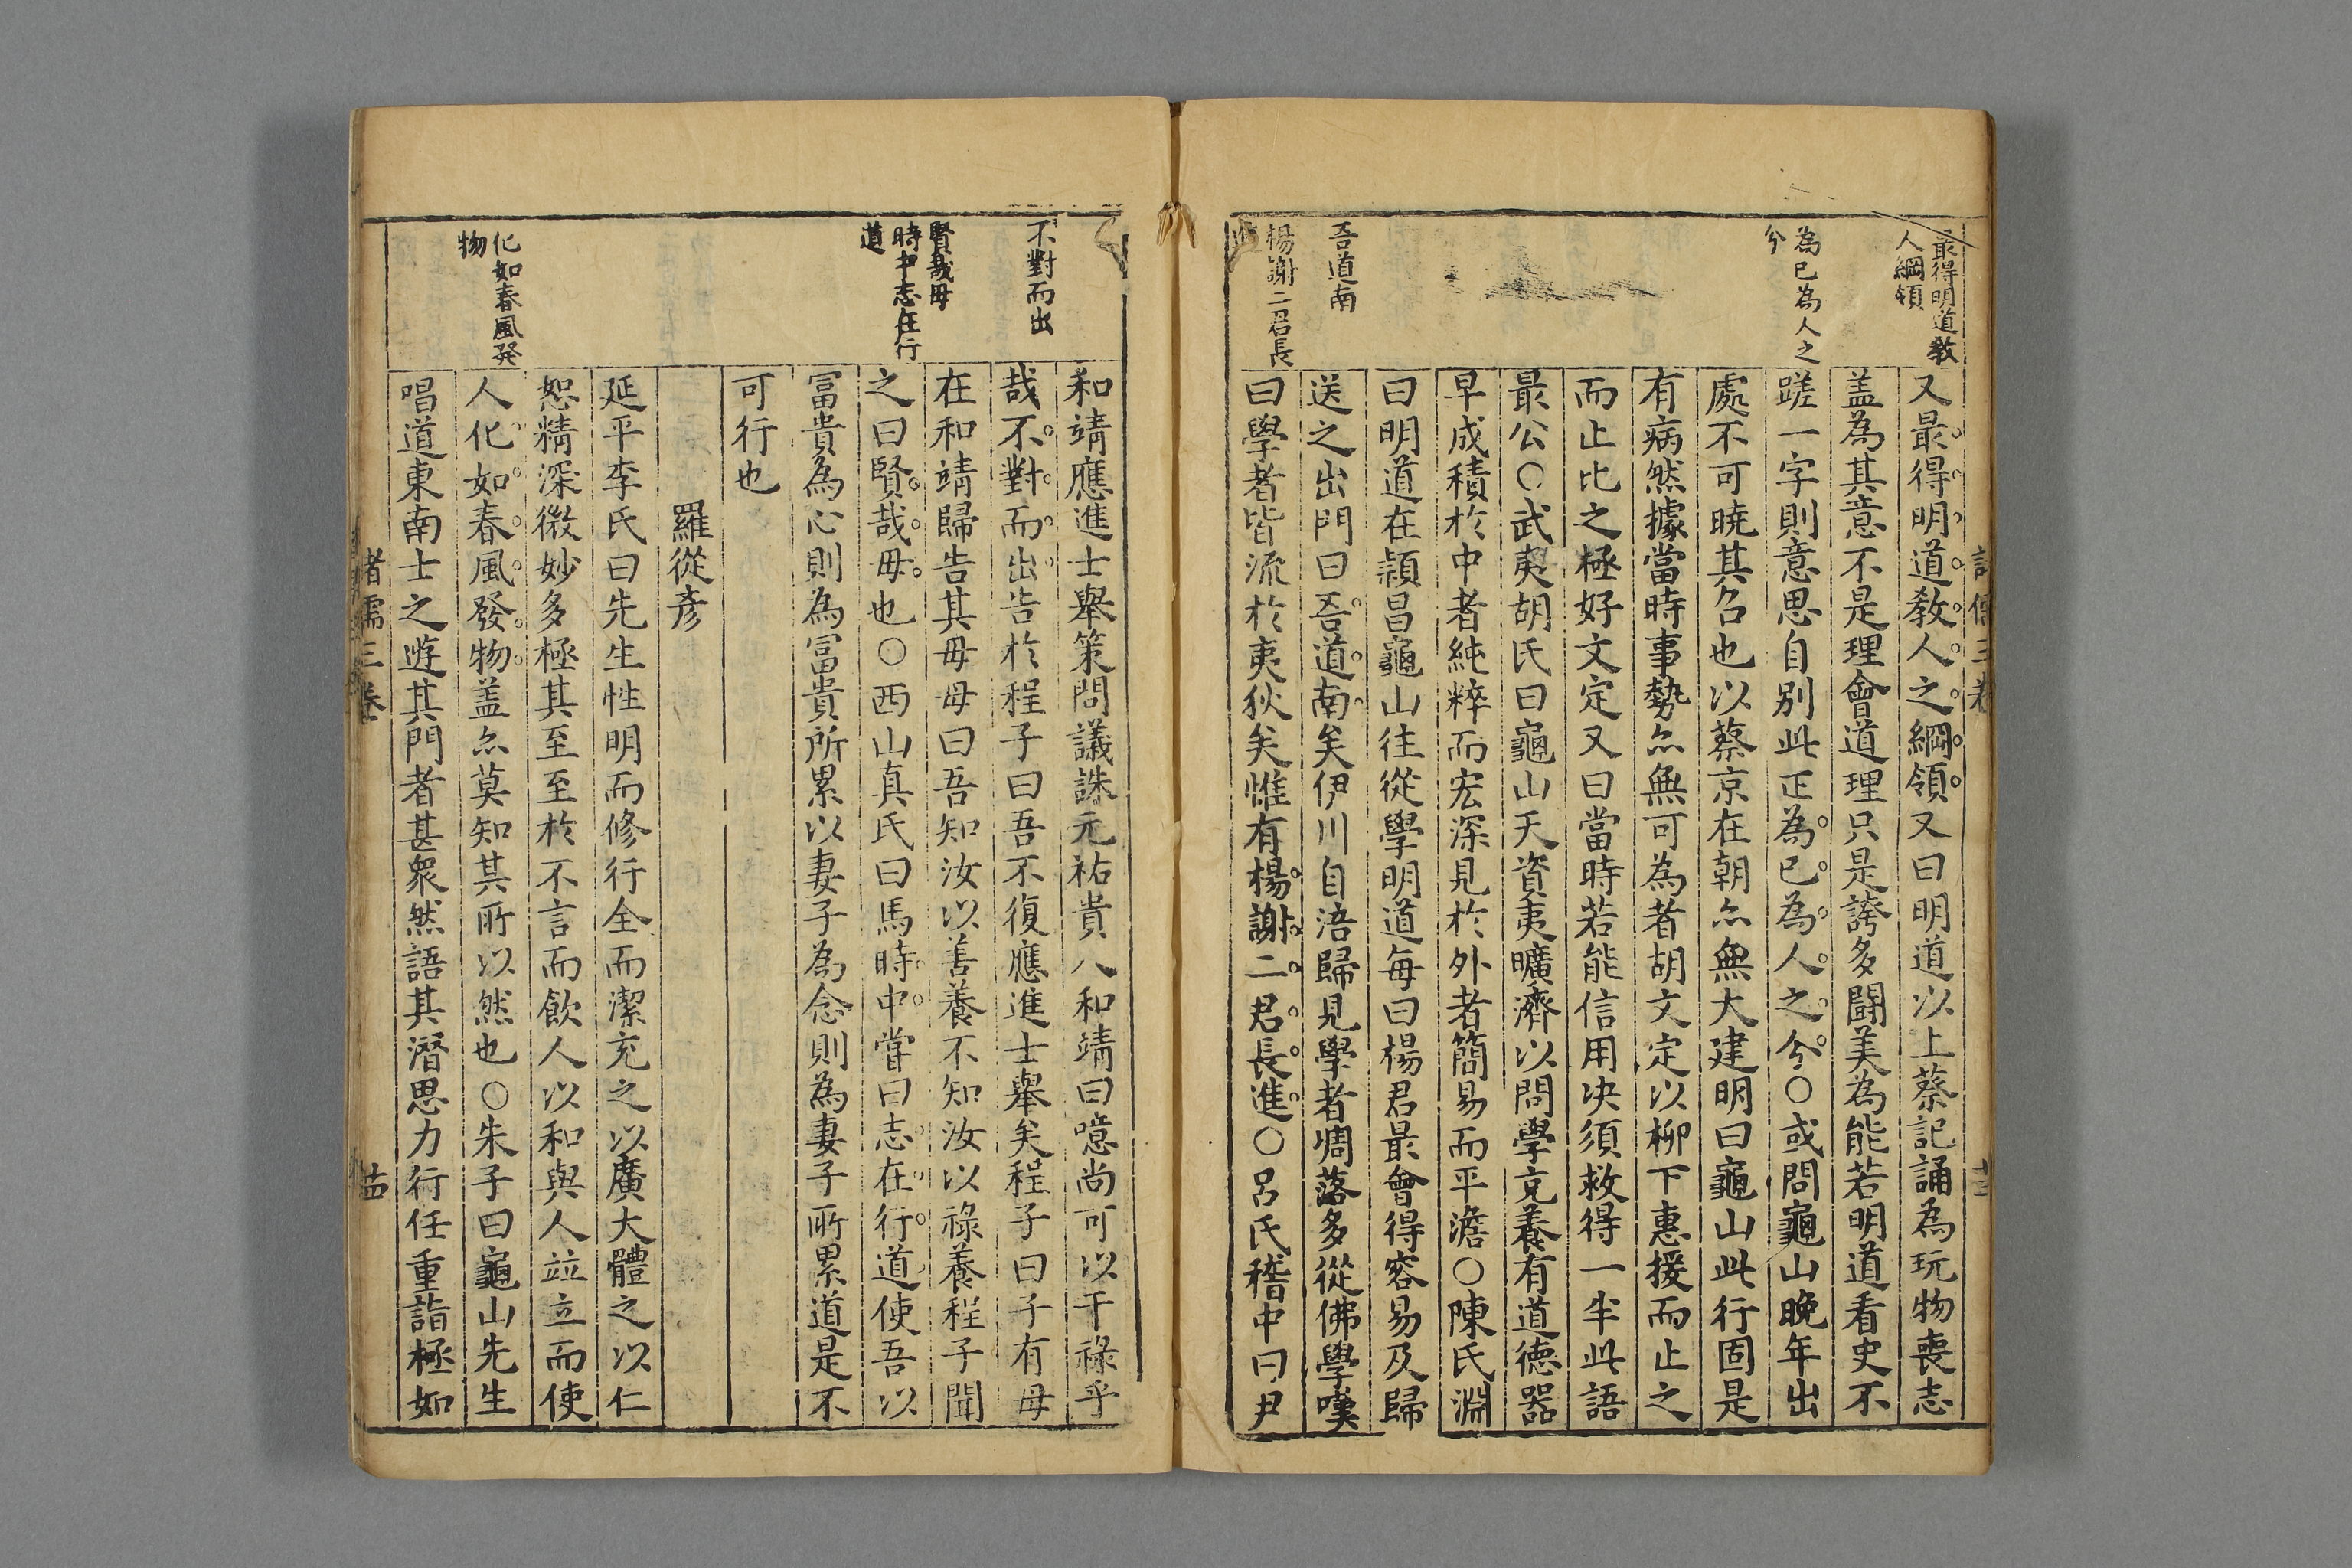 最得明道教
人綱領
為已為人之
分
吾道南
楊謝二君長
又最得明道教人之綱領又曰明道以上蔡記誦為玩物喪志
盖為其意不是理會道理只是誇多鬪美為能若明道看史不
蹉一字則意思自別此正為已為人之分〇或問龜山晚年出
處不可曉其召也以蔡京在朝亦無大建明曰龜山此行固是
有病然據當時事勢亦無可為者胡文定以柳下惠援而止之
而止比之極好文定又曰當時若能信用决須救得一半此語
最公〇武夷胡氏曰龜山天資夷曠濟以問學充養有道德器
早成積於中者純粹而宏深見於外者簡易而平澹〇陳氏淵
曰明道在潁昌龜山往從學明道每曰楊君最會得容易及歸
送之出門曰吾道南矣伊川自涪歸見學者凋落多從佛學嘆
曰學者皆流於夷狄矣惟有楊謝二君長進〇呂氏稽中曰尹
不對而出
賢哉母
時中志在行
道
化如春風発
物
和靖應進士舉策問議誅元祐貴人和靖曰噫尚可以干祿乎
哉不對而出告於程子曰吾不復應進士舉矣程子曰子有母
在和靖歸告其母母曰吾知汝以善養不知汝以祿養程子聞
之曰賢哉母也〇西山真氏曰馬時中嘗曰志在行道使吾以
冨貴為心則為冨貴所累以妻子為念則為妻子所累道是不
可行也
羅從彥
延平李氏曰先生性明而修行全而潔充之以廣大體之以仁
恕精深微妙多極其至至於不言而飲人以和與人竝立而使
人化如春風發物盖亦莫知其所以然也〇朱子曰龜山先生
唱道東南士之遊其門者甚衆然語其潛思力行任重詣極如
諸儒三卷